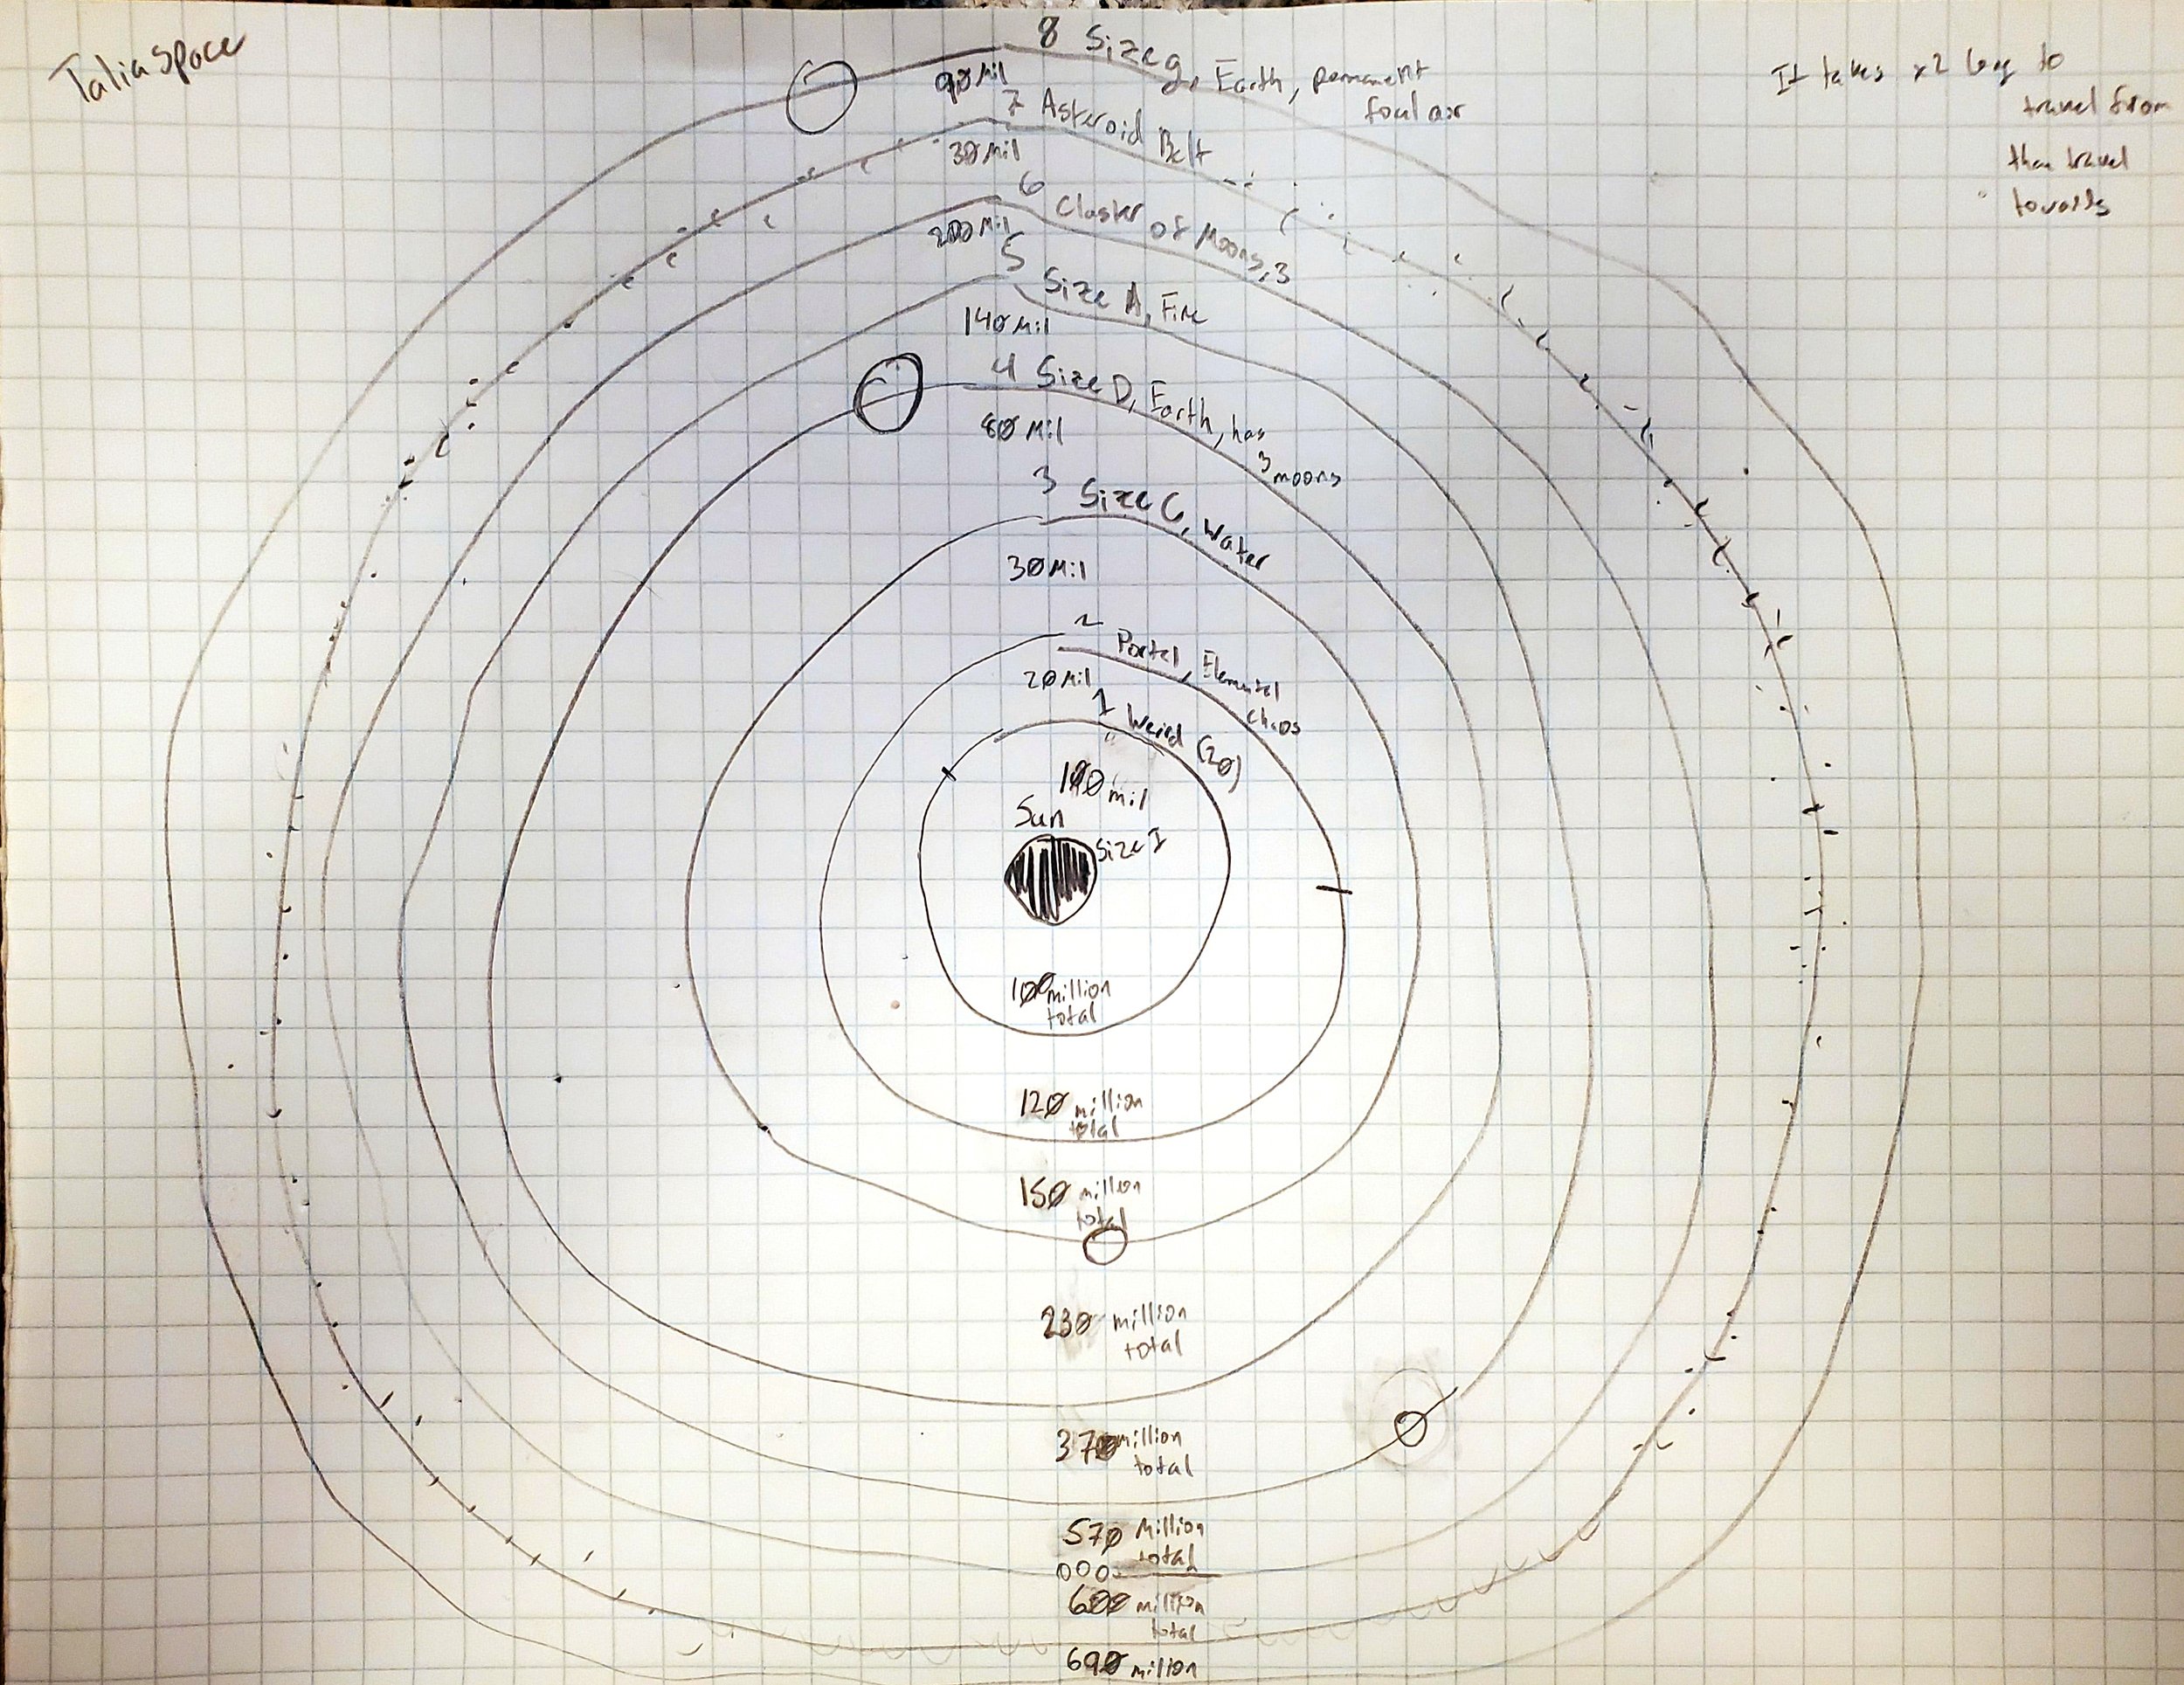 Talia Space
It takes x2 long to
travel from
then travel
towards
8 Size g, Earth, permanent
foul air
90 Mil
7 Asteroid Belt
30 Mil
6 Cluster of Moons, 3
200 Mil
5 Size A, Fire
140 Mil
4 Size D, Earth, has
3 moons
80 Mil
3 Size C, Water
30 Mil
2 Portal, Elemental
Chaos
20 Mil
1 Weird (20)
100 mil
Sun
Size I
100 million
total
120 million
total
150 million
total
230 million
total
370 million
total
570 Million
total
600 million
total
690 million